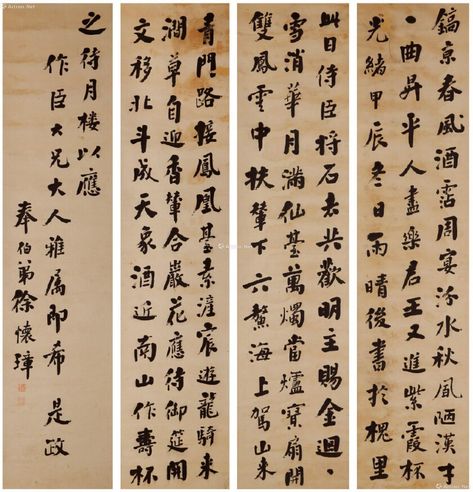 青門路接鳳凰臺素滻宸遊龍騎來
澗草自迎香輦合巖花應待御筵開
文移北斗成天象酒近南山作壽杯
此日侍臣將石去共歡明主賜金迴
雪消華月滿仙臺萬燭當爐寶扇開
雙鳳雲中扶輦下六鰲海上駕山來
鎬京春風酒霑周宴汾水秋風陋漢才
一曲昇平人盡樂君王又進紫霞杯
光緒甲辰冬日雨晴後書於槐里
之待月樓以應
作臣大兄大人雅屬即希是政
奉伯弟徐懷璋